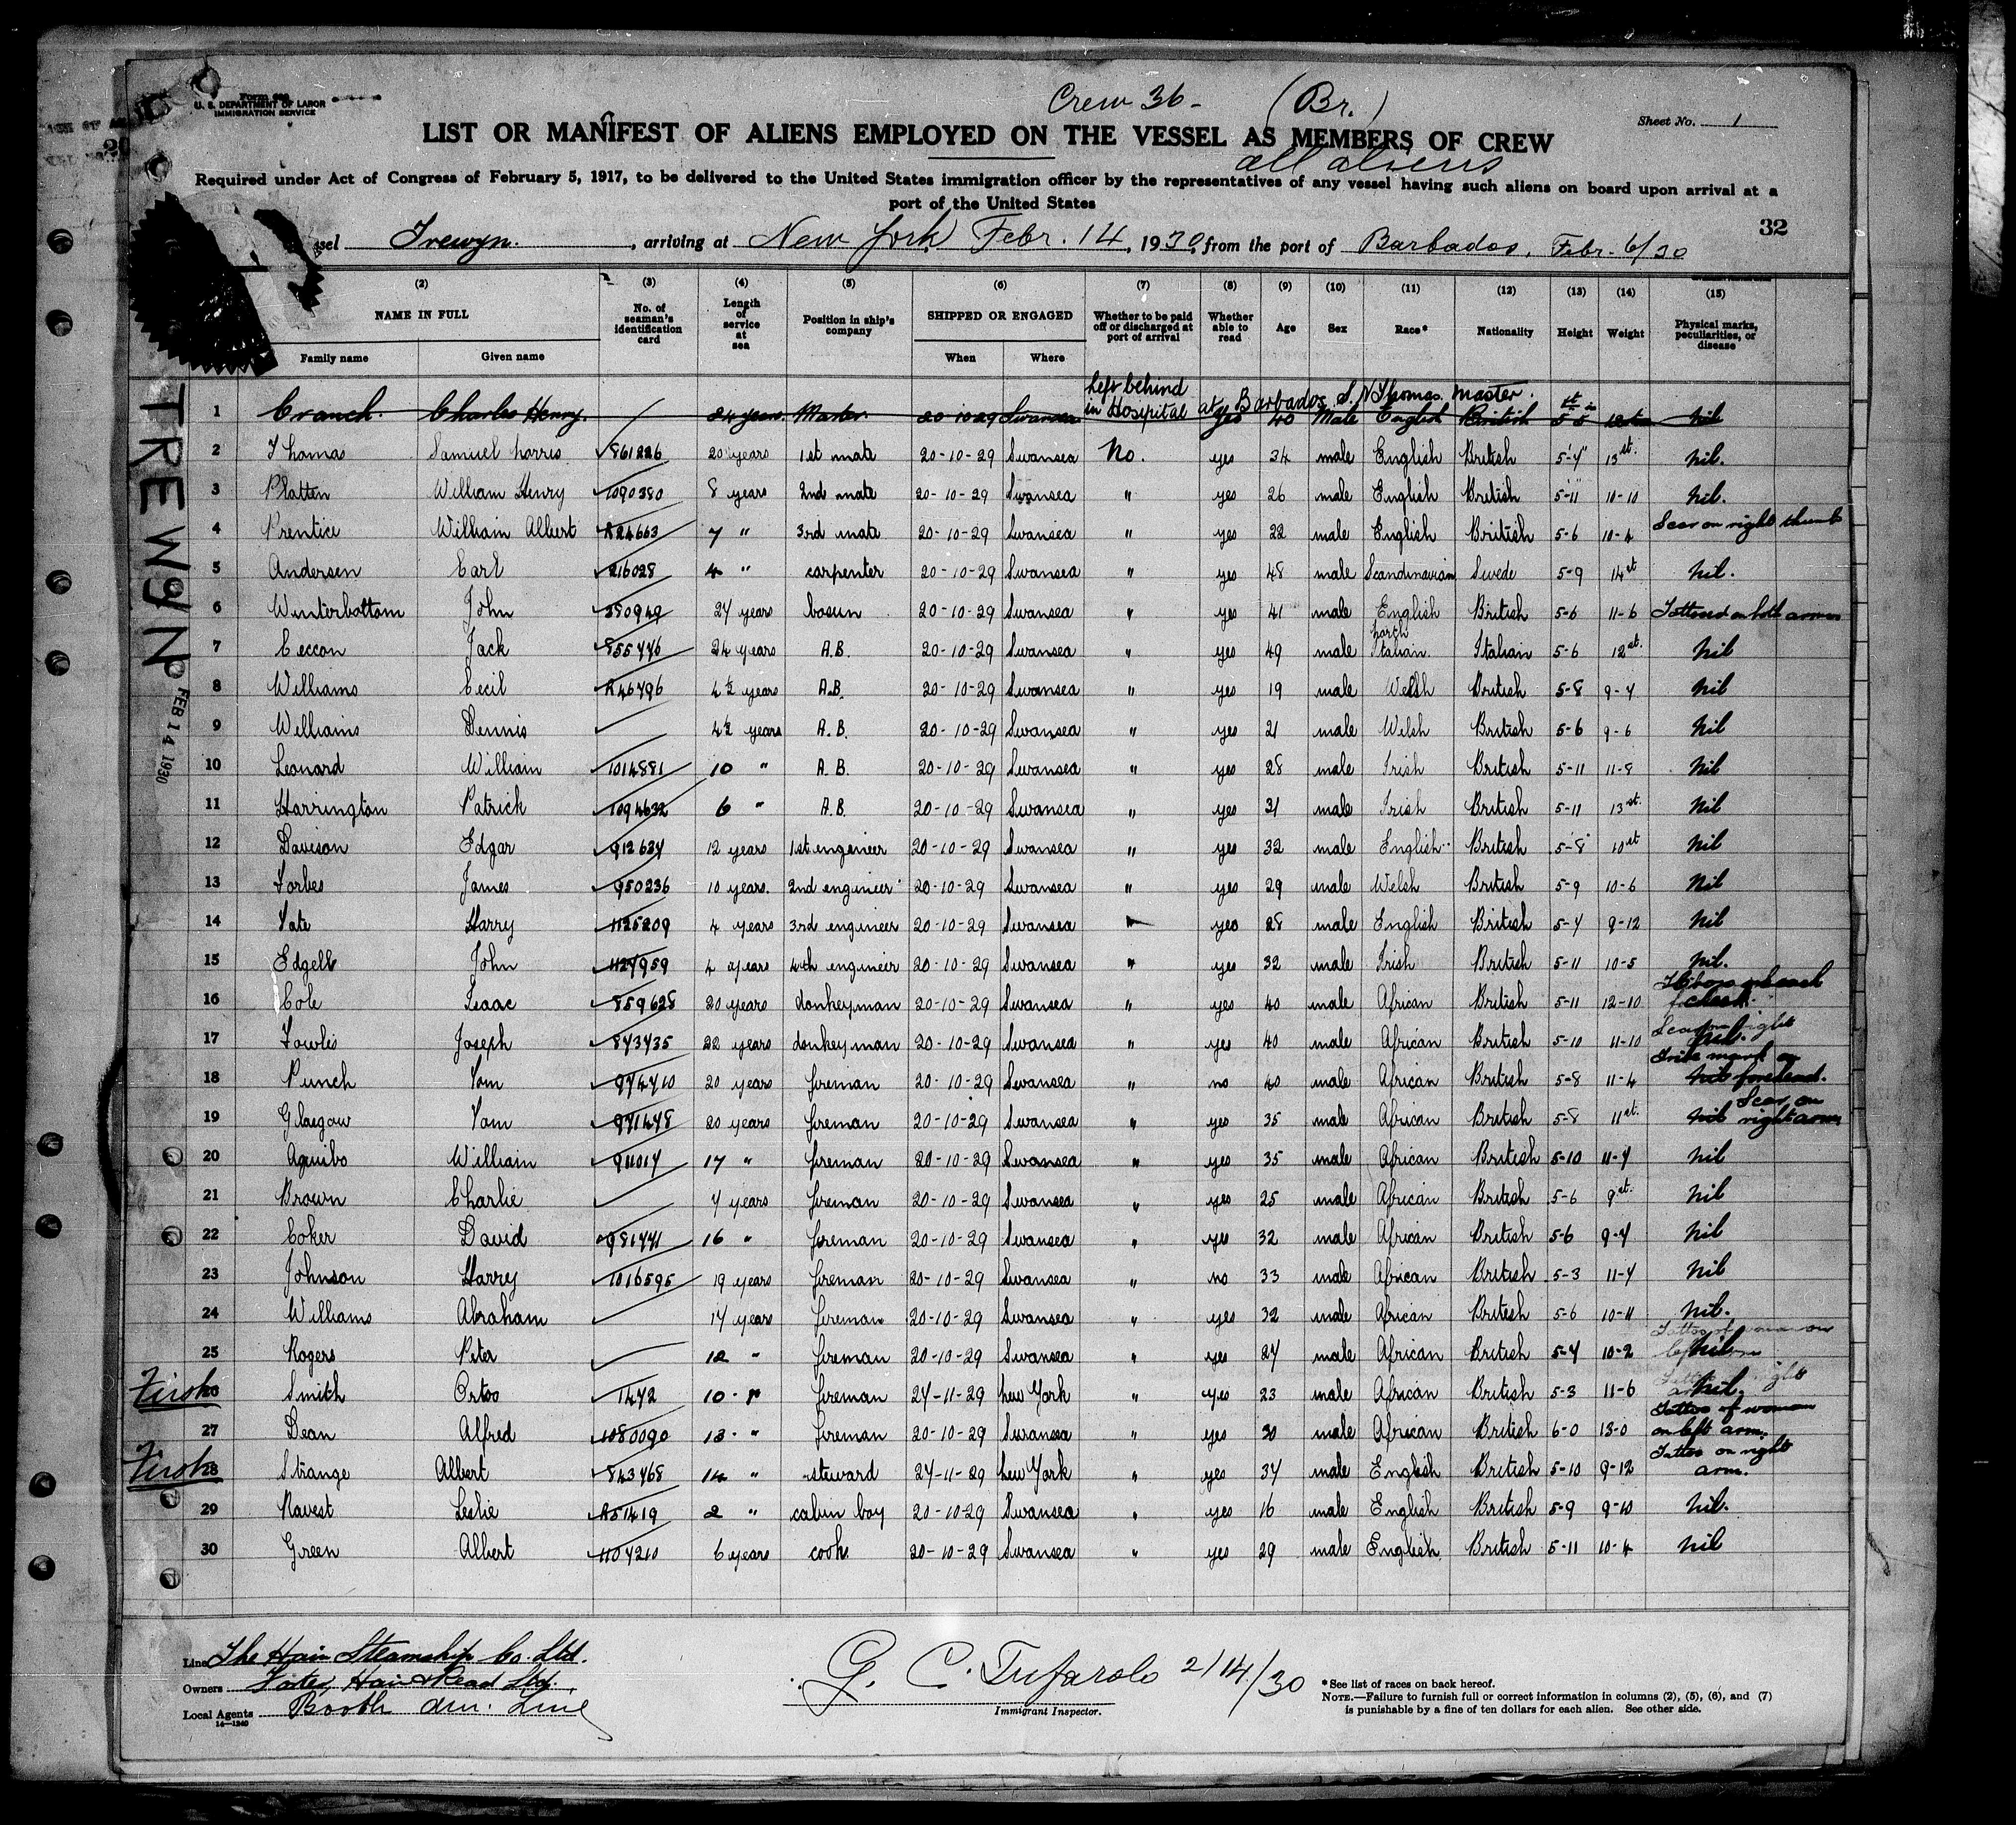 Crew 36- (Br.)
U. S. DEPARTMENT OF LABOR
IMMIGRATION SERVICE
Sheet No. 1
LIST OR MANIFEST OF ALIENS EMPLOYED ON THE VESSEL AS MEMBERS OF CREW
all aliens
Required under Act of Congress of February 5, 1917, to be delivered to the United States immigration officer by the representatives of any vessel having such aliens on board upon arrival at a
port of the United States
32
ssel Trewyn. , arriving at New York, Febr. 14, 1930, from the port of Barbados, Febr. 6/30
(2) (3) (4) (5) (6) (7) (8) (9) (10) (11) (12) (13) (14) (15)
NAME IN FULL No. of seaman's identification card Length of service at sea Position in ship's company SHIPPED OR ENGAGED Whether to be paid off or discharged at port of arrival Whether able to read Age Sex Race* Nationality Height Weight Physical marks, peculiarities, or disease
Family name Given name When Where
TREWYN FEB 14 1930
Left behind in Hospital at Barbados S. N Thomas. Master.
1 Cranch. Charles Henry. / 24 years. Master. 20-10-29 Swansea yes 40 Male English British 5-5 Nil
2 Thomas Samuel Norris 861226 20 years 1st mate 20-10-29 Swansea No. yes 34 male English British 5-4" 13st. Nil.
3 Platten William Henry 1090380 8 years 2nd mate 20-10-29 Swansea " yes 26 male English British 5-11" 10-10 Nil.
4 Prentice William Albert R24663 7 " 3rd mate 20-10-29 Swansea " yes 22 male English British 5-6 10-4 Scar on right thumb
5 Andersen Earl 216028 4 " carpenter 20-10-29 Swansea " yes 48 male Scandinavian Swede 5-9 14st Nil.
6 Winterbottom John 580949 27 years bosun 20-10-29 Swansea " yes 41 male English British 5-6 11-6 Tattooed on both arms
7 Ceccon Jack 855446 24 years A.B. 20-10-29 Swansea " yes 49 male North Italian. Italian 5-6 12st. Nil
8 Williams Cecil R46796 4½ years A.B. 20-10-29 Swansea " yes 19 male Welsh British 5-8 9-7 Nil
9 Williams Dennis 4½ years A.B. 20-10-29 Swansea " yes 21 male Welsh British 5-6 9-6 Nil
10 Leonard William 1014881 10 " A.B. 20-10-29 Swansea " yes 28 male Irish British 5-11 11-8 Nil
11 Harrington Patrick 1094632 6 " A.B. 20-10-29 Swansea " yes 31 male Irish British 5-11 13st. Nil
12 Davison Edgar 912634 12 years 1st engineer 20-10-29 Swansea " yes 32 male English British 5-8" 10st Nil
13 Forbes James 950236 10 years. 2nd engineer 20-10-29 Swansea " yes 29 male Welsh British 5-9 10-6 Nil
14 Tate Harry 1125209 4 years 3rd engineer 20-10-29 Swansea " yes 28 male English British 5-4 9-12 Nil
15 Edgell John 1127959 4 years 4th engineer 20-10-29 Swansea " yes 32 male Irish British 5-11 10-5 Nil.
16 Cole Isaac 859628 20 years donkeyman 20-10-29 Swansea " yes 40 male African British 5-11 12-10
17 Fowlis Joseph 843435 22 years donkeyman 20-10-29 Swansea " yes 40 male African British 5-10 11-10 Scar on right Nil.
18 Punch Tom 974710 20 years fireman 20-10-29 Swansea " no 40 male African British 5-8 11-4 Tribe mark on Nil forehead.
19 Glasgow Tom 971478 20 years fireman 20-10-29 Swansea " yes 35 male African British 5-8 11st. Nil Scar on right arm
20 Aguibo William 911017 17 " fireman 20-10-29 Swansea " yes 35 male African British 5-10 11-7 Nil
21 Brown Charlie 7 years fireman 20-10-29 Swansea " yes 25 male African British 5-6 9st. Nil
22 Coker David 981771 16 " fireman 20-10-29 Swansea " yes 32 male African British 5-6 9-7 Nil
23 Johnson Harry 1016595 19 years fireman 20-10-29 Swansea " no 33 male African British 5-3 11-7 Nil
24 Williams Abraham 17 years fireman 20-10-29 Swansea " yes 32 male African British 5-6 10-11 Nil.
25 Rogers Peter 12 " fireman 20-10-29 Swansea " yes 27 male African British 5-7 10-2 Tattoo of woman on left Nil
Smith Ortoo 1472 10 " fireman 27-11-29 New York " yes 23 male African British 5-3 11-6 Nil. right
27 Dean Alfred 1080090 13 " fireman 20-10-29 Swansea " yes 30 male African British 6-0 13-0 Tattoo of woman on left arm.
28 Strange Albert 843468 14 " steward 27-11-29 New York " yes 37 male English British 5-10 9-12 Tattoo on right arm.
29 Ravest Leslie R51419 2 " cabin boy 20-10-29 Swansea " yes 16 male English British 5-9 9-10 Nil.
30 Green Albert 1107210 6 years cook 20-10-29 Swansea " yes 29 male English British 5-11 10-4 Nil
Line The Hain Steamship Co. Ltd.
Owners Foster, Hain & Read Ltd.
Local Agents Booth Am. Line
14-1240
G. C. Tufarolo 2/14/30
Immigrant Inspector.
*See list of races on back hereof.
NOTE.—Failure to furnish full or correct information in columns (2), (5), (6), and (7)
is punishable by a fine of ten dollars for each alien. See other side.